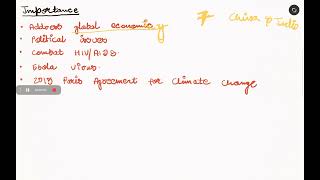 Importance
• Address global economy
• Political issues
• Combat HIV/AIDS
• Ebola Virus.
• 2015 Paris Agreement for Climate Change
China